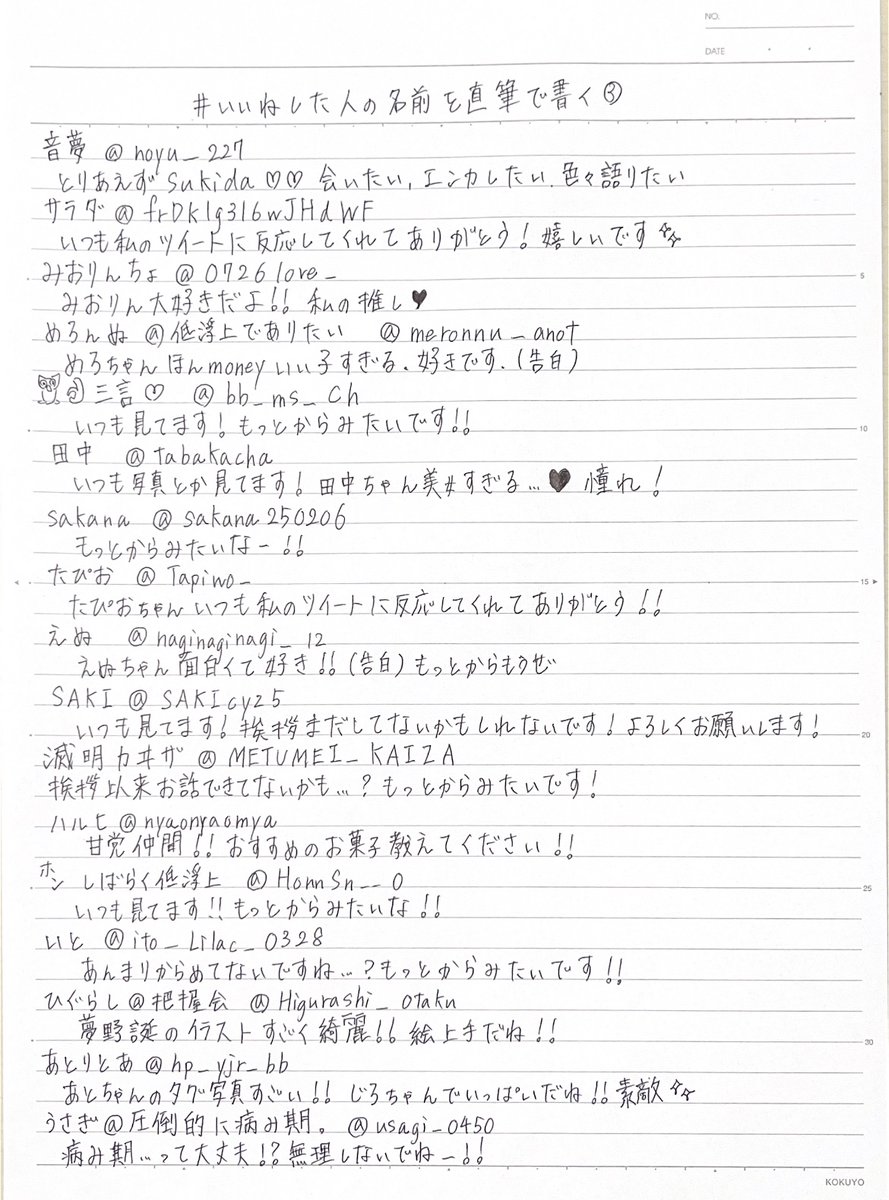 NO.
DATE
#いいねした人の名前を直筆で書く③
音夢 @noyu_227
とりあえずsukida♡♡ 会いたい,エンカしたい.色々語りたい
サラダ @frDklg316wJHdWF
いつも私のツイートに反応してくれてありがとう!嬉しいです✨
みおりんちょ @0726love_
5
みおりん大好きだよ!! 私の推し♥
めろんぬ@低浮上でありたい @meronnu_anot
めろちゃんほんmoneyいい子すぎる.好きです.(告白)
三言♡ @bb_ms_Ch
いつも見てます!もっとからみたいです!!
10
田中 @tabakacha
いつも写真とか見てます!田中ちゃん美女すぎる…♥ 憧れ!
sakana @sakana250206
もっとからみたいなー!!
たぴお @Tapiwo_
15
たぴおちゃんいつも私のツイートに反応してくれてありがとう!!
えぬ @naginaginagi_12
えぬちゃん面白くて好き!!(告白)もっとからもうぜ
SAKI @SAKIcy25
いつも見てます!挨拶まだしてないかもしれないです!よろしくお願いします!
20
滅明カヰザ @METUMEI_KAIZA
挨拶以来お話できてないかも…?もっとからみたいです!
ハルヒ @nyaonyaomya
甘党仲間!!おすすめのお菓子教えてください!!
ホン しばらく低浮上 @HonnSn__0
25
いつも見てます!!もっとからみたいな!!
いと @ito_Lilac_0328
あんまりからめてないですね…?もっとからみたいです!!
ひぐらし@把握会 @Higurashi_otaku
夢野誕のイラストすごく綺麗!!絵上手だね!!
30
あとりとあ @hp_yjr_bb
あとちゃんのタグ写真すごい!! じろちゃんでいっぱいだね!!素敵✨
うさぎ@圧倒的に病み期。 @usagi_0450
病み期…って大丈夫!?無理しないでねー!!
KOKUYO